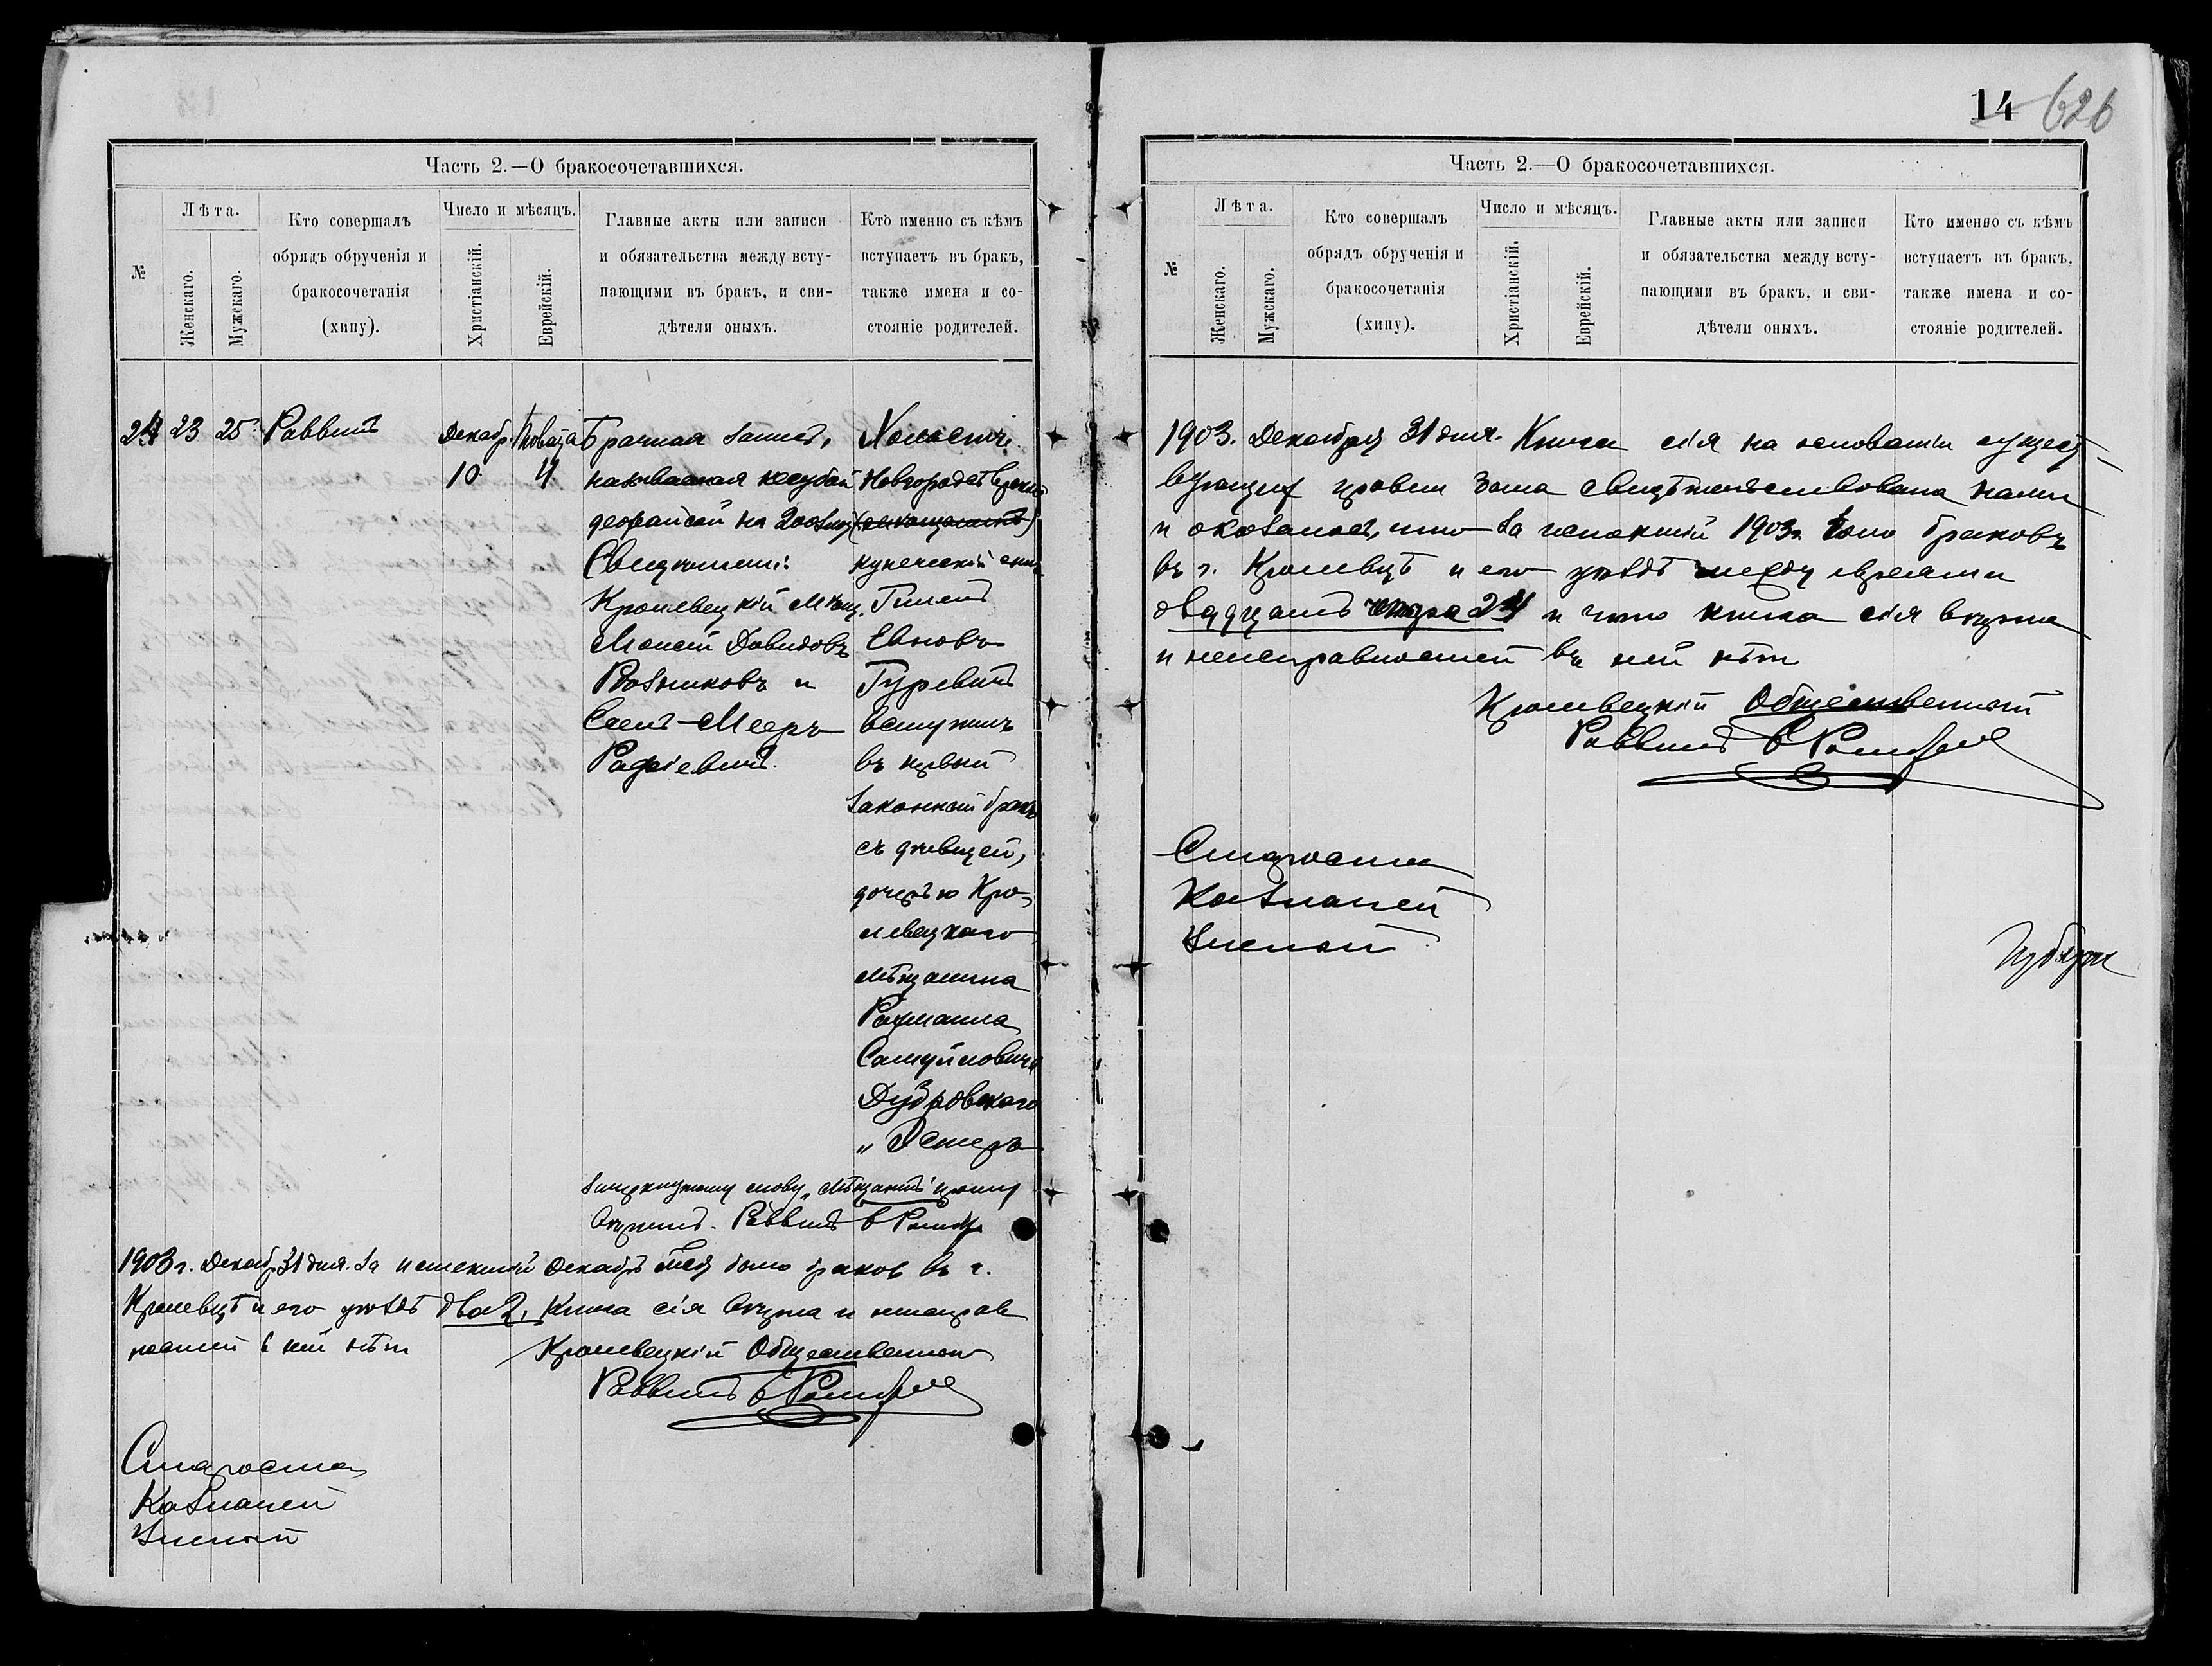 Часть 2.—О бракосочетавшихся.
№
Лѣта.
Женскаго.
Мужскаго.
Кто совершалъ
обрядъ обрученія и
бракосочетанія
(хипу).
Число и мѣсяцъ.
Христіанскій.
Еврейскій.
Главные акты или записи
и обязательства между всту-
пающими въ бракъ, и сви-
дѣтели оныхъ.
Кто именно съ кѣмъ
вступаетъ въ бракъ,
также имена и со-
стояніе родителей.
24
23
25
Раввинъ
Декабр.
10
4
Брачная запись,
называемая кесубой
на 200
Свидѣтели:
Кролевецкій Мѣщ.
Моисей Давидовъ
Возниковъ и
Мееръ
Холостъ
Новгородсѣверскій
купеческій сынъ
Евновъ
Гуревичъ
вступилъ
въ первый
законный бракъ
съ дѣвицей,
дочерью Кро-
левецкаго
мѣщанина
Рахмаила
Самуйловича
Дубровскаго
„ Эстеръ
Зачеркнутому слову „мѣщанинъ“
Раввинъ
1903 г. Декабр. 31 дня. За истекшій Декабрь мѣсяц было браков въ г.
Кролевцѣ и его уѣздѣ два 2, Книга сія вѣрна и неисправ
ностей в ней нѣтъ
Кролевецкій Общественный
Раввинъ
Староста
Казначей
Ученый
14 626
Часть 2.—О бракосочетавшихся.
№
Лѣта.
Женскаго.
Мужскаго.
Кто совершалъ
обрядъ обрученія и
бракосочетанія
(хипу).
Число и мѣсяцъ.
Христіанскій.
Еврейскій.
Главные акты или записи
и обязательства между всту-
пающими въ бракъ, и сви-
дѣтели оныхъ.
Кто именно съ кѣмъ
вступаетъ въ бракъ,
также имена и со-
стояніе родителей.
1903. Декабря 31 дня. Книга сія на основаніи сущест-
вующих правил была свидѣтельствована нами
и оказалось, что за истекшій 1903 г. было браковъ
въ г. Кролевцѣ и его уѣздѣ между евреями
двадцать четыре 24 и что книга сія вѣрна
и неисправностей въ ней нѣтъ
Кролевецкій Общественный
Раввинъ
Староста
Казначей
Ученый